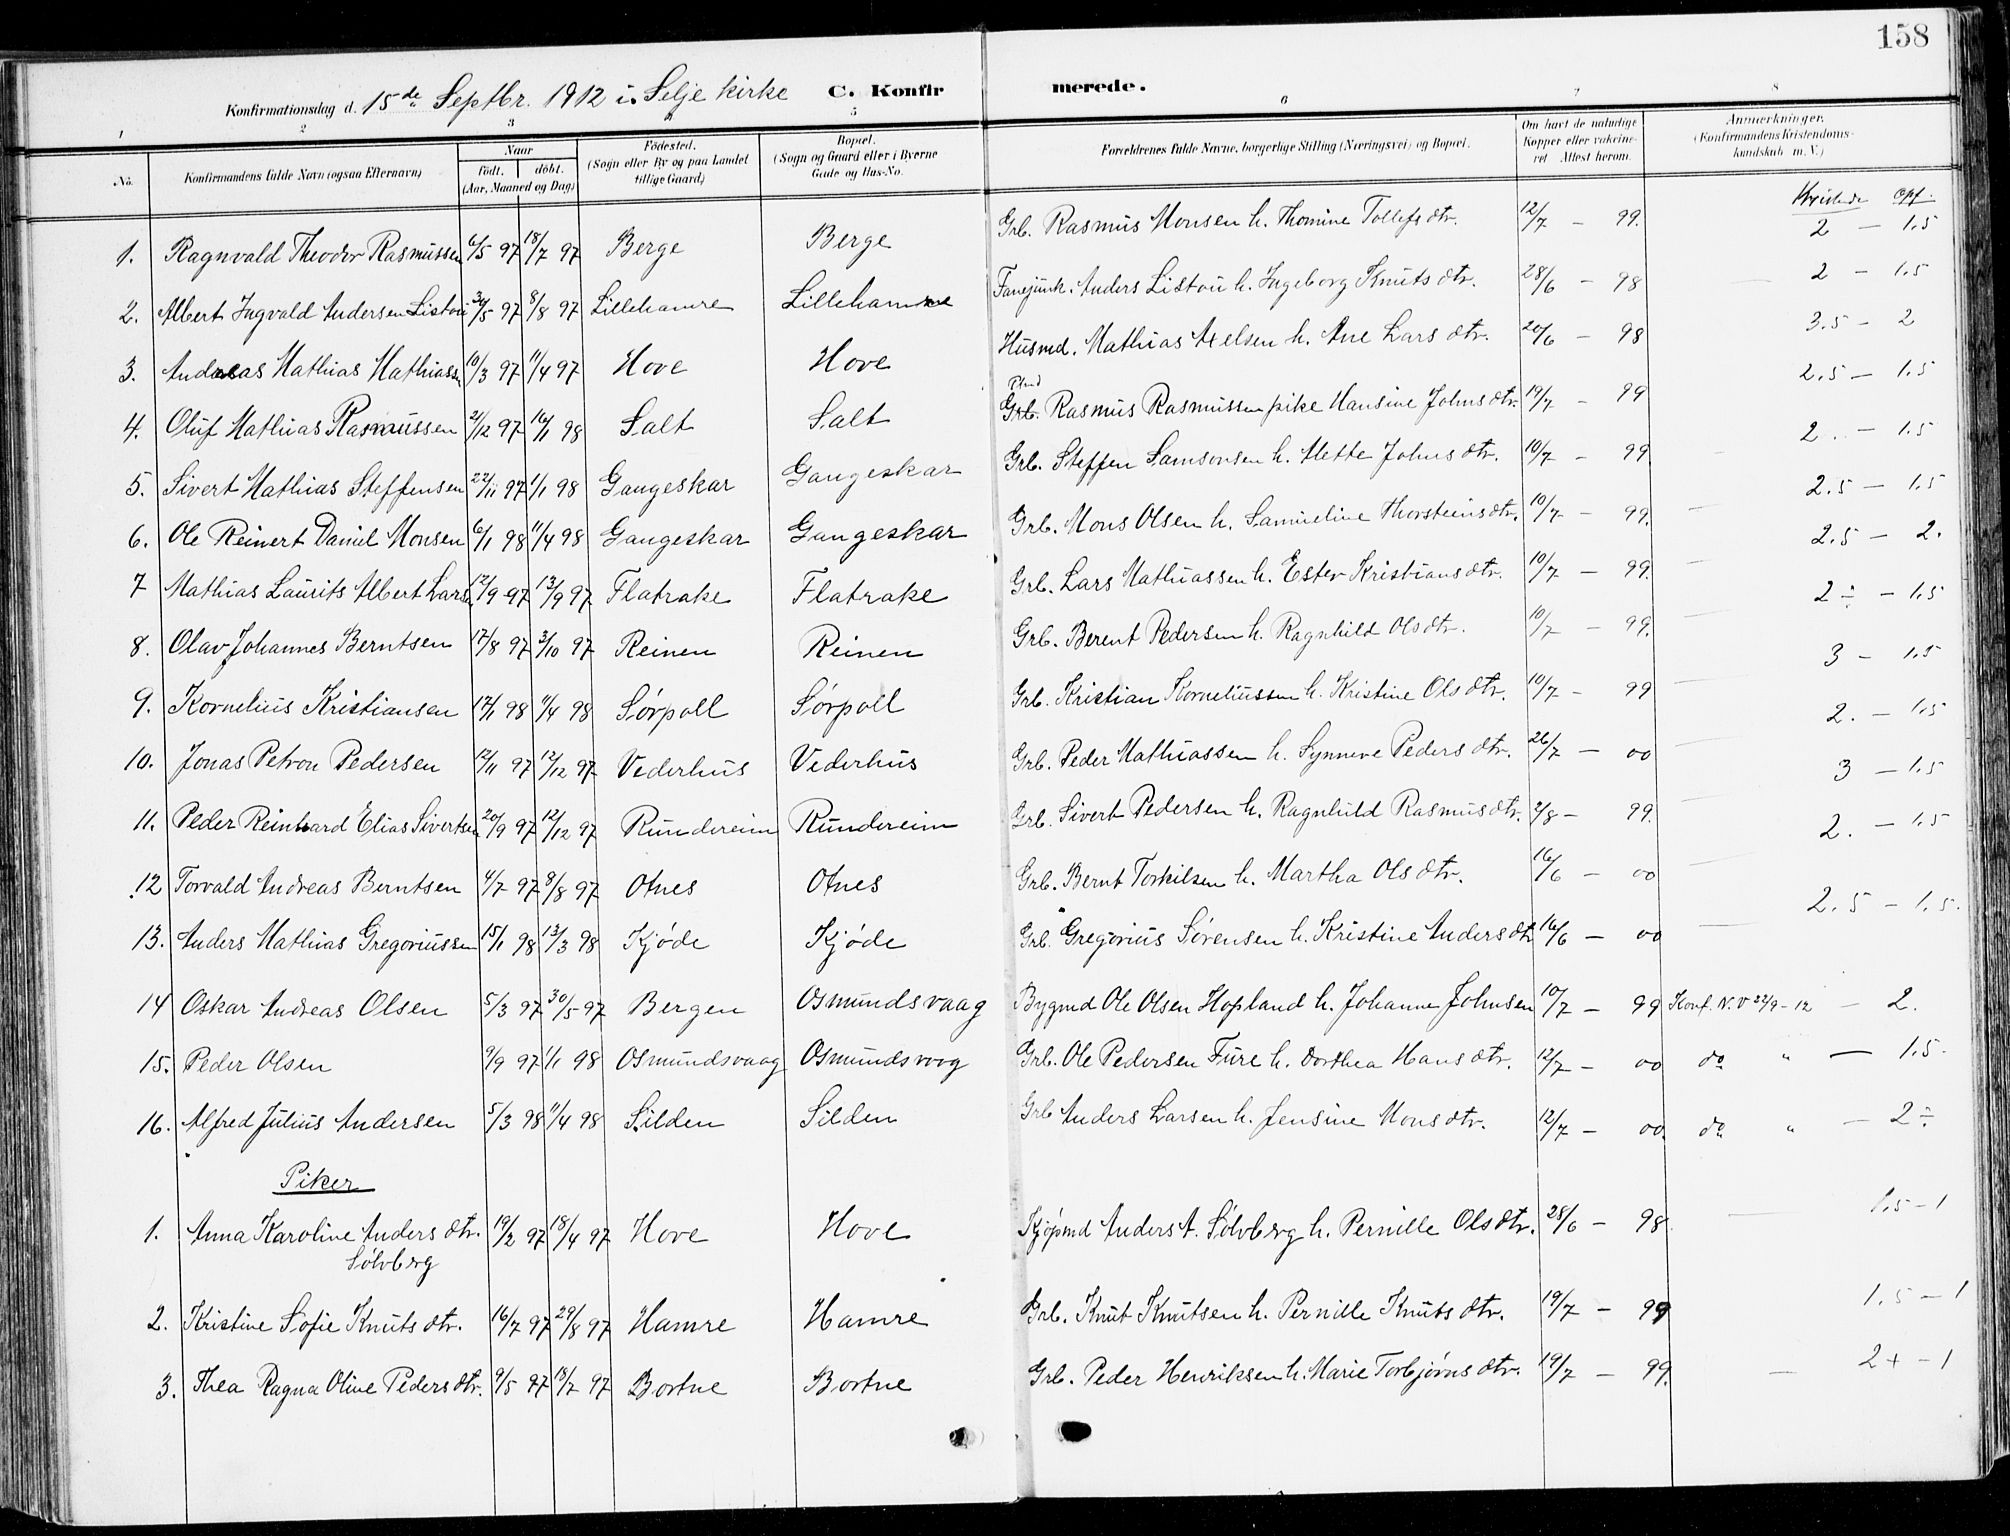 158
Konfirmationsdag d. 15de Septbr. 1912 i Selje kirke C. Konfirmerede.
1 2 3 4 5 6 7 8
No. Konfirmandens fulde Navn (ogsaa Efternavn) Naar født. døbt. (Aar, Maaned og Dag) Fødested. (Sogn eller By og paa Landet tillige Gaard) Bopæl. (Sogn og Gaard eller i Byerne Gade og Hus-No. Forældrenes fulde Navne, borgerlige Stilling (Næringsvei) og Bopæl. Om havt de naturlige Kopper eller vakcineret. Attest herom. Anmerkninger. (Konfirmandens Kristendomskundskab m. V.)
Opf.
1. Ragnvald Theodor Rasmussen 6/5 97 18/7 97 Berge Berge Grb. Rasmus Monsen h. Thomine Tollefsdtr. 12/7 - 99. 2 - 1.5
2. Albert Ingvald Andersen Listou 30/5 97 8/8 97 Lillehamre Lillehamre Fanejunk. Anders Listou h. Ingeborg Knutsdtr. 28/6 - 98 2 - 1.5
3. Andreas Mathias Mathiassen 10/3 97 11/4 97 Hove Hove Husmd. Mathias Axelsen h. Ane Larsdtr. 20/6 - 98 3.5 - 2
4. Oluf Mathias Rasmussen 21/12 97 16/1 98 Salt Salt Grb. Rasmus Rasmussen pike Hansine Johnsdtr. 19/7 - 99 2.5 - 1.5
5. Sivert Mathias Steffensen 22/11 97 1/1 98 Gangeskar Gangeskar Grb. Steffen Samsonsen h. Mette Johnsdtr. 10/7 - 99 2. - 1.5
6. Ole Reinert Daniel Monsen 6/1 98 11/4 98 Gangeskar Gangeskar Grb. Mons Olsen h. Samueline Thorsteinsdtr. 10/7 - 99. 2.5 - 1.5
7 Mathias Laurits Albert Larsen 12/9 97 13/9 97 Flatrake Flatrake Grb. Lars Mathiassen h. Ester Kristiansdtr. 10/7 - 99. 2.5 - 2.
8. Olav Johannes Berntsen 17/8 97 3/10 97 Reinen Reinen Grb. Berent Pedersen h. Ragnhild Olsdtr. 10/7 - 99. 2 ÷ - 1.5
9. Kornelius Kristiansen 17/1 98 11/4 98 Sørpoll Sørpoll Grb. Kristian Korneliussen h. Kristine Olsdtr. 10/7 - 99 3 - 1.5
10. Jonas Petron Pedersen 12/11 97 12/12 97 Vederhus Vederhus Grb. Peder Mathiassen h. Synneve Pedersdtr. 26/7 - 00 2. - 1.5
11. Peder Reinhard Elias Sivertsen 20/9 97 12/12 97 Rundereim Rundereim Grb. Sivert Pedersen h. Ragnhild Rasmusdtr. 2/8 - 99. 3 - 1.5
12 Torvald Andreas Berntsen 4/7 97 8/8 97 Otnes Otnes Grb. Bernt Torkilsen h. Martha Olsdtr. 16/6 - 00 2. - 1.5
13. Anders Mathias Gregoriussen 15/1 98 13/3 98 Kjøde Kjøde Grb. Gregorius Sørensen h. Kristine Andersdtr 16/6 - 00 2.5 - 1.5.
14 Oskar Andreas Olsen 5/3 97 30/5 97 Bergen Osmundsvaag Bygmd Ole Olsen Hopland h. Johanne Johnsen 10/7 - 99 Konf. N.V 22/9-12 - 2.
15. Peder Olsen 9/9 97 1/1 98 Osmundsvaag Osmundsvog Grb. Ole Pedersen Fure h. Dorthea Hansdtr. 12/7 - 00 do " - 1.5.
16. Alfred Julius Andersen 5/3 98 11/4 98 Silden Silden Grb Anders Larsen h. Jensine Monsdtr. 12/7 - 00. do " - 2 ÷
Piker
1. Anna Karoline Andersdtr. Sølvberg 19/2 97 18/4 97 Hove Hove Kjøpmd Anders A. Sølvberg h. Pernille Olsdtr. 28/6 - 98. 1.5 - 1
2. Kristine Sofie Knutsdtr. 16/7 97 29/8 97 Hamre Hamre Grb. Knut Knutsen h. Pernille Knutsdtr. 19/7 - 99 1.5 - 1
3. Thea Ragna Oline Pedersdtr. 9/5 97 18/7 97 Bortne Bortne Grb. Peder Henriksen h. Marie Torbjørnsdtr. 19/7 - 99. 2+ - 1